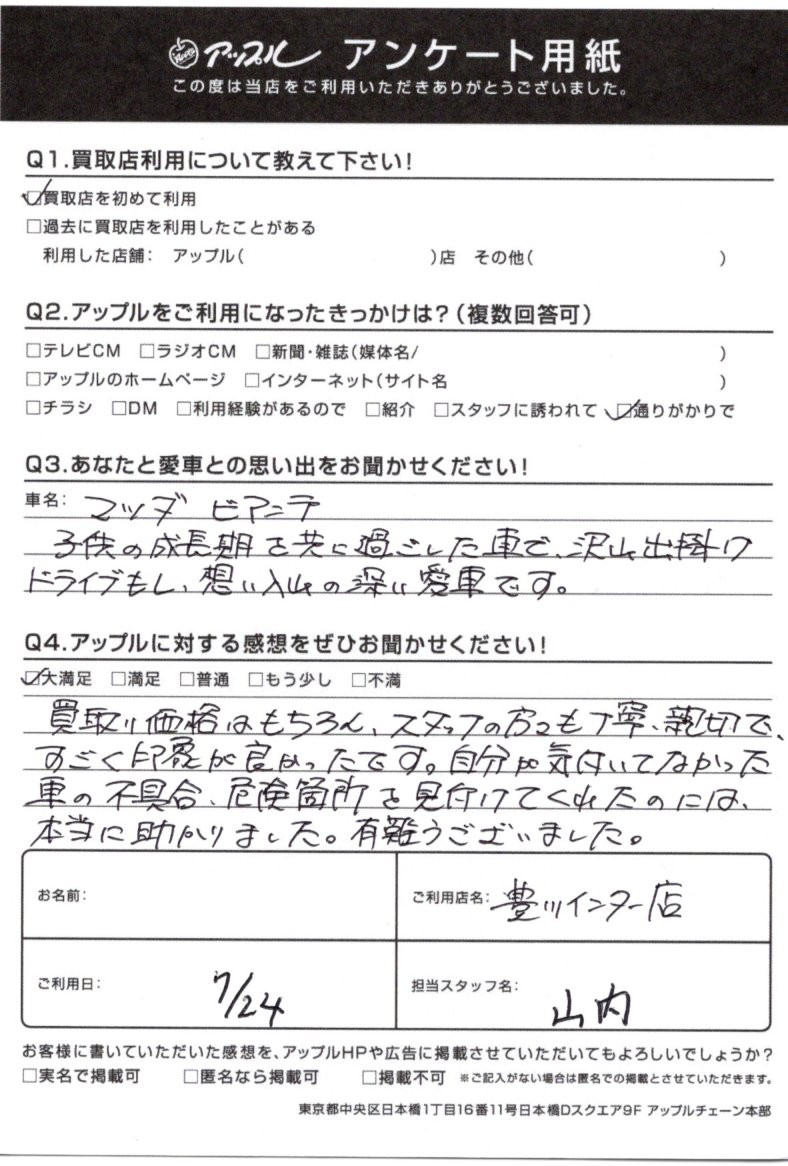 アップル アンケート用紙
この度は当店をご利用いただきありがとうございました。
Q1.買取店利用について教えて下さい!
☑買取店を初めて利用
□過去に買取店を利用したことがある
利用した店舗: アップル( )店 その他( )
Q2.アップルをご利用になったきっかけは?(複数回答可)
□テレビCM □ラジオCM □新聞・雑誌(媒体名/ )
□アップルのホームページ □インターネット(サイト名 )
□チラシ □DM □利用経験があるので □紹介 □スタッフに誘われて ☑通りがかりで
Q3.あなたと愛車との思い出をお聞かせください!
車名: マツダ ビアンテ
子供の成長期を共に過ごした車で、沢山出掛け
ドライブもし、想い入れの深い愛車です。
Q4.アップルに対する感想をぜひお聞かせください!
☑大満足 □満足 □普通 □もう少し □不満
買取り価格はもちろん、スタッフの方々も丁寧、親切で、
すごく印象が良かったです。自分が気付いてなかった
車の不具合、危険箇所を見付けてくれたのには、
本当に助かりました。有難うございました。
お名前:
ご利用店名: 豊川インター店
ご利用日: 7/24
担当スタッフ名: 山内
お客様に書いていただいた感想を、アップルHPや広告に掲載させていただいてもよろしいでしょうか?
□実名で掲載可 □匿名なら掲載可 □掲載不可 ※ご記入がない場合は匿名での掲載とさせていただきます。
東京都中央区日本橋1丁目16番11号日本橋Dスクエア9F アップルチェーン本部